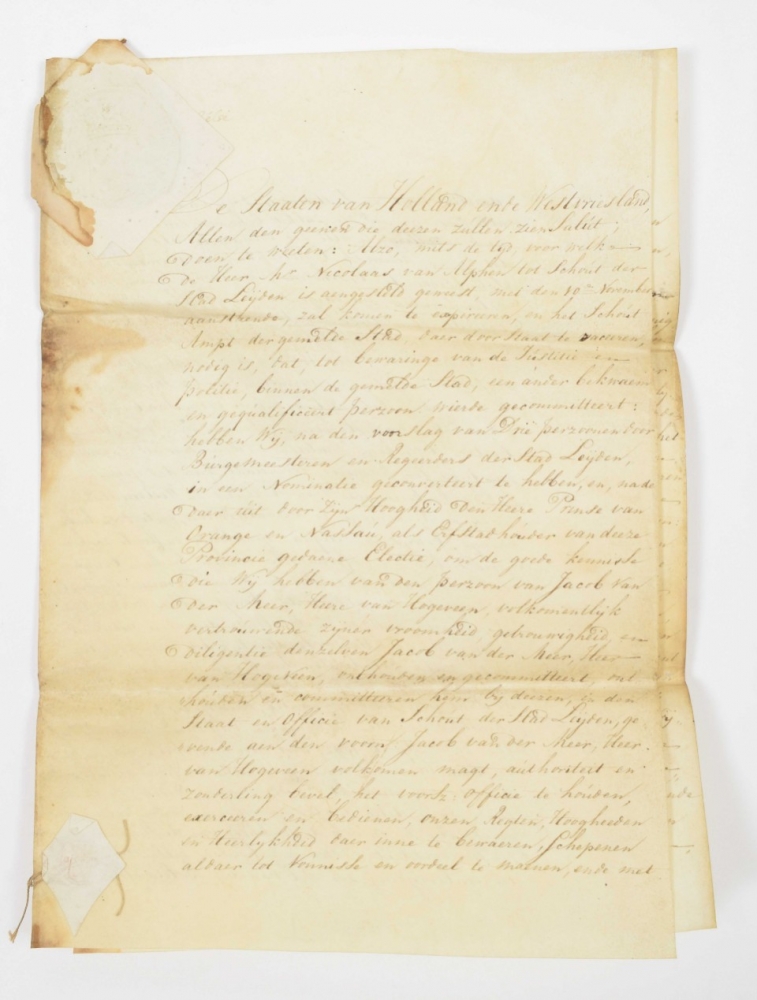 De Staaten van Holland ende Westvriesland,
Allen den geenen die deezen zullen zien Salút;
Doen te weten: Alzo, mits de tijd, voor welke
de Heer Mr Nicolaas van Alphen tot Schout der
Stad Leijden is aengesteld geweest, met den 10en November
aanstaende, zal komen te expireeren, en het Schout
Ampt der gemelde Stad, daer door staat te vaceeren,
nodig is, dat, tot bewaringe van de Justitie en
politie, binnen de gemelde Stad, een ander bekwaem
en gequalificeert perzoon wierde gecommitteert:
hebben Wij, na den voorslag van Drie perzoonen door
Búrgemeesteren en Regeerders der Stad Leijden,
in een Nominatie geconverteert te hebben, en, na de
daer uit door Zijn Hoogheid Den Heere Prinse van
Orange en Nassaú, als Erfstadhóuder van deeze
Provincie gedaene Electie, om de goede kennisse
die Wij hebben van den perzoon van Jacob van
der Meer, Heere van Hogeveen, volkomentlijk
vertrouwende zijner vroomheid getrouwigheid, en
diligentie denzelven Jacob van der Meer, Heer
van Hogeveen, onthouden en gecommitteert, ont
houden en committeeren hem bij deezen, in den
Staat en Officie van Schout der Stad Leijden, ge
vende aen den voorn: Jacob van der Meer, Heer
van Hogeveen volkomen magt, aúthoriteit en
zonderling bevel, het voorsz: Officie te hóuden,
exerceeren en bedienen, onzen Regten, Hoogheeden
en Heerlijkheid daer inne te bewaeren, Schepenen
aldaer tot Vonnisse en oordeel te maenen, ende met